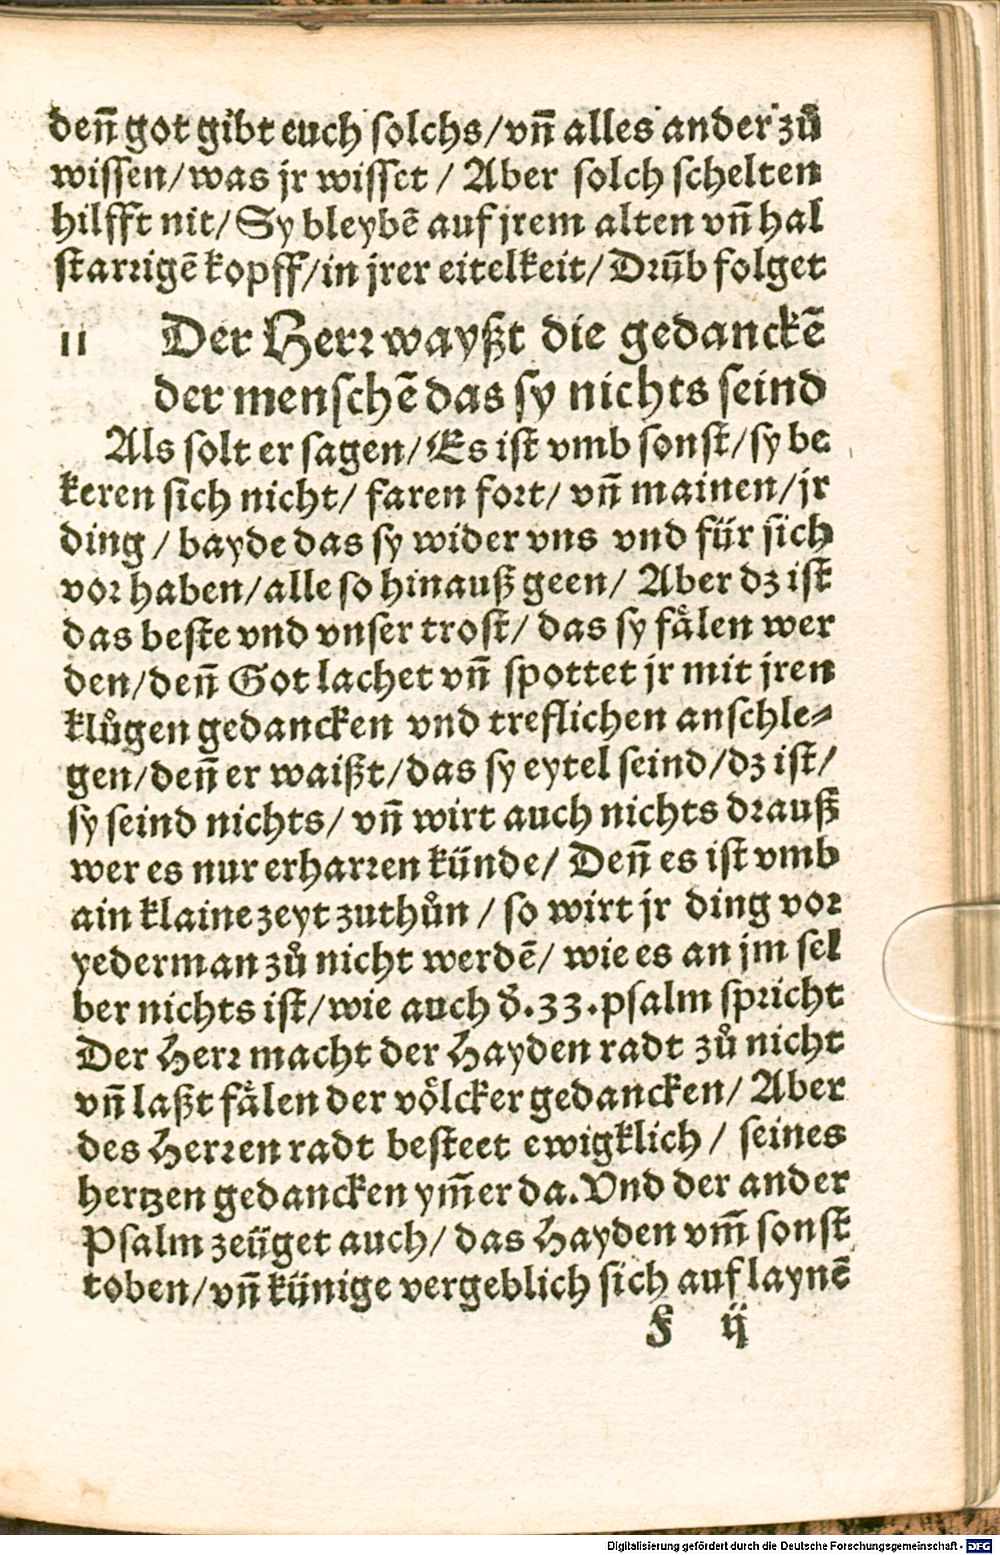 deñ got gibt euch solchs/vñ alles ander zů
wissen/was jr wisset / Aber solch schelten
hilfft nit/Sy bleybē auf jrem alten vñ hal
starrigē kopff/in jrer eitelkeit/Drüb folget
11 Der Herr wayßt die gedanckē
der menschē das sy nichts seind
Als solt er sagen/Es ist vmb sonst/sy be
keren sich nicht/ faren fort/ vñ mainen/jr
ding / bayde das sy wider vns vnd für sich
vor haben/alle so hinauß geen/ Aber dz ist
das beste vnd vnser trost/ das sy fålen wer
den/deñ Got lachet vñ spottet jr mit jren
klůgen gedancken vnd treflichen anschle⸗
gen/deñ er waißt/das sy eytel seind/dz ist/
sy seind nichts/ vñ wirt auch nichts drauß
wer es nur erharren künde/ Deñ es ist vmb
ain klaine zeyt zuthůn / so wirt jr ding vor
yederman zů nicht werdē/ wie es an jm sel
ber nichts ist/wie auch d̕.33.psalm spricht
Der Herr macht der Hayden radt zů nicht
vñ laßt fålen der völcker gedancken/ Aber
des Herren radt besteet ewigklich/ seines
hertzen gedancken ym̃er da.Vnd der ander
Psalm zeüget auch/ das Hayden vm̃ sonst
toben/vñ künige vergeblich sich auf laynē
F ij
Digitalisierung gefördert durch die Deutsche Forschungsgemeinschaft - DFG